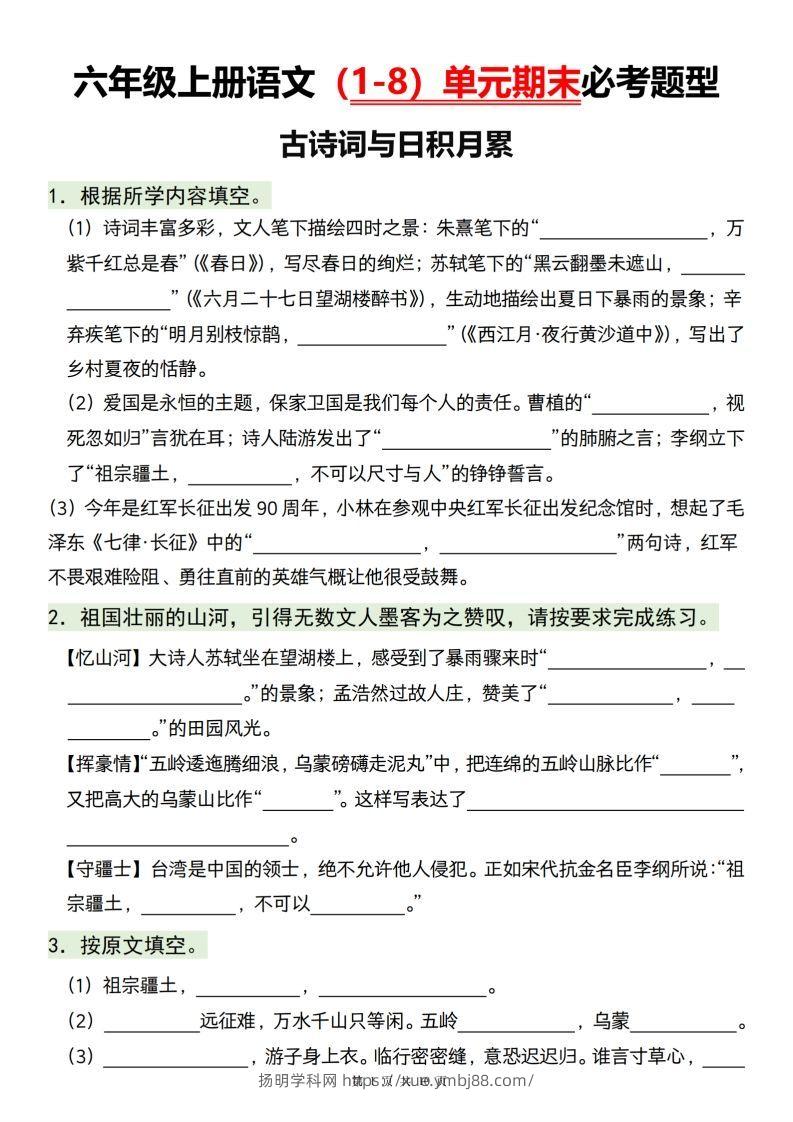 六年级上册语文（1-8）单元期末必考题型
古诗词与日积月累
1．根据所学内容填空。
（1）诗词丰富多彩，文人笔下描绘四时之景：朱熹笔下的“________________，万
紫千红总是春”（《春日》），写尽春日的绚烂；苏轼笔下的“黑云翻墨未遮山，______
__________”（《六月二十七日望湖楼醉书》），生动地描绘出夏日下暴雨的景象；辛
弃疾笔下的“明月别枝惊鹊，______________”（《西江月·夜行黄沙道中》），写出了
乡村夏夜的恬静。
（2）爱国是永恒的主题，保家卫国是我们每个人的责任。曹植的“___________，视
死忽如归”言犹在耳；诗人陆游发出了“________________”的肺腑之言；李纲立下
了“祖宗疆土，__________，不可以尺寸与人”的铮铮誓言。
（3）今年是红军长征出发 90 周年，小林在参观中央红军长征出发纪念馆时，想起了毛
泽东《七律·长征》中的“________________，________________”两句诗，红军
不畏艰难险阻、勇往直前的英雄气概让他很受鼓舞。
2．祖国壮丽的山河，引得无数文人墨客为之赞叹，请按要求完成练习。
【忆山河】大诗人苏轼坐在望湖楼上，感受到了暴雨骤来时“_______________，__
________________。”的景象；孟浩然过故人庄，赞美了“____________，____
________。”的田园风光。
【挥豪情】“五岭逶迤腾细浪，乌蒙磅礴走泥丸”中，把连绵的五岭山脉比作“_______”，
又把高大的乌蒙山比作“_______”。这样写表达了__________________________
_____________________。
【守疆士】台湾是中国的领士，绝不允许他人侵犯。正如宋代抗金名臣李纲所说：“祖
宗疆土，_________，不可以_________。”
3．按原文填空。
（1）祖宗疆土，__________，________________。
（2）_________远征难，万水千山只等闲。五岭___________，乌蒙__________。
（3）______________，游子身上衣。临行密密缝，意恐迟迟归。谁言寸草心，____
扬明学科网 https://xue.ymbj88.com/